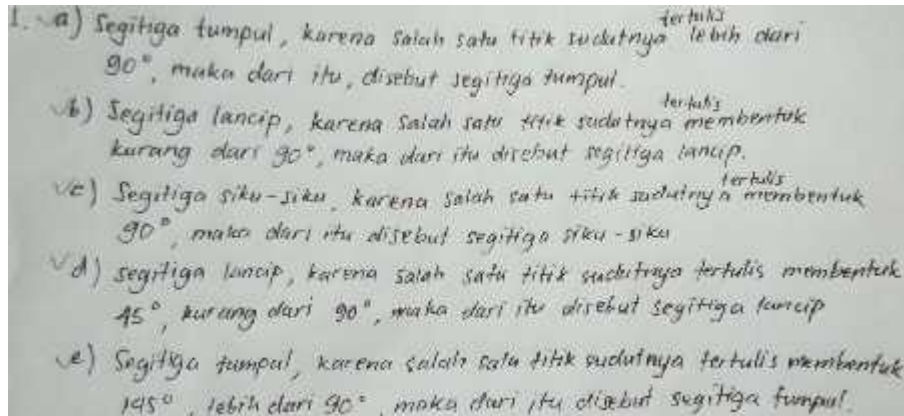 1. a) Segitiga tumpul, karena salah satu titik sudutnya tertulis lebih dari
90°, maka dari itu, disebut segitiga tumpul.
b) Segitiga lancip, karena salah satu titik sudutnya tertulis membentuk
kurang dari 90°, maka dari itu disebut segitiga lancip.
c) Segitiga siku-siku, karena salah satu titik sudutnya tertulis membentuk
90°, maka dari itu disebut segitiga siku-siku
d) segitiga lancip, karena salah satu titik sudutnya tertulis membentuk
45°, kurang dari 90°, maka dari itu disebut segitiga lancip
e) Segitiga tumpul, karena salah satu titik sudutnya tertulis membentuk
145°, lebih dari 90°, maka dari itu disebut segitiga tumpul.